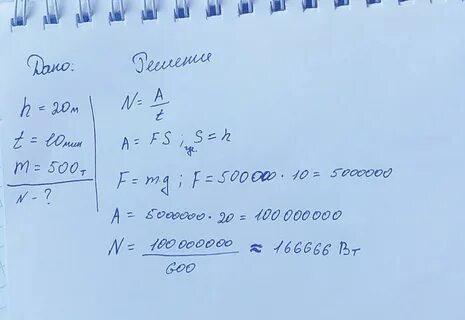 Дано:
h = 20м
t = 10мин
m = 500т
N - ?
Решение
N = A/t
A = FS ; где S = h
F = mg ; F = 500000 · 10 = 5000000
A = 5000000 · 20 = 100000000
N = 100000000/600 ≈ 166666 Вт